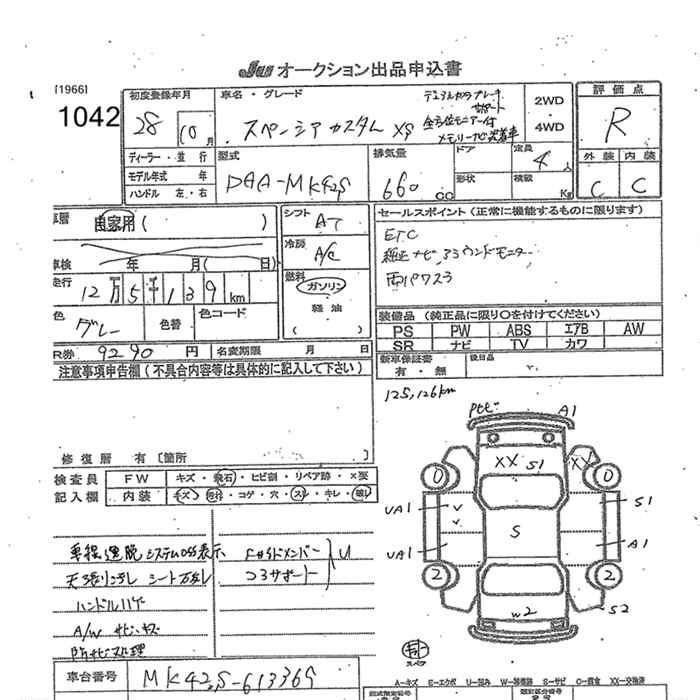 JU オークション出品申込書
[1966]
1042
初度登録年月
28 10月
車名・グレード
スペーシアカスタム XS
デュアルカメラブレーキ
サポート
全方位モニター付
メモリーナビ装着車
2WD
・
4WD
評価点
R
外装 内装
C C
ディーラー・並行
モデル年式 年
ハンドル 左・右
型式
DAA-MK42S
排気量
660 CC
ドア
形状
定員
4人
積載
Kg
車歴
自家用( )
車検 年 月( 日)
走行
12万5千139km
色
グレー
色替
色コード
R券 9290円 名変期限 月 日
シフト AT
冷房 A/C
燃料
ガソリン
軽油
( )
セールスポイント(正常に機能するものに限ります)
ETC
純正ナビ アラウンドモニター
両パワスラ
装備品(純正品に限り○を付けてください)
PS PW ABS エアB AW
SR ナビ TV カワ
新車保証書
有・無
後日品
注意事項申告欄(不具合内容等は具体的に記入して下さい)
修復歴 有〔箇所 〕
検査員
記入欄
FW キズ・飛石・ヒビ割・リペア跡・×要
内装 キズ・内ヨゴレ・コゲ・穴・スレ・キレ・破レ
車線逸脱システムOSS表示
天張りヨゴレ シート万ヨレ
ハンドルハゲ
A/W サビ・キズ
防サビ処理
Fサイドメンバー
コアサポート
U
125,126km
PtE
A1
XX
S1
XX
0
0
UA1
S1
S
UA1
A1
2
2
W2
S2
スペア
車台番号 MK42S-613369
A－キズ E－エクボ U－凹み W－補修跡 S－サビ C－腐食 XX－交換済